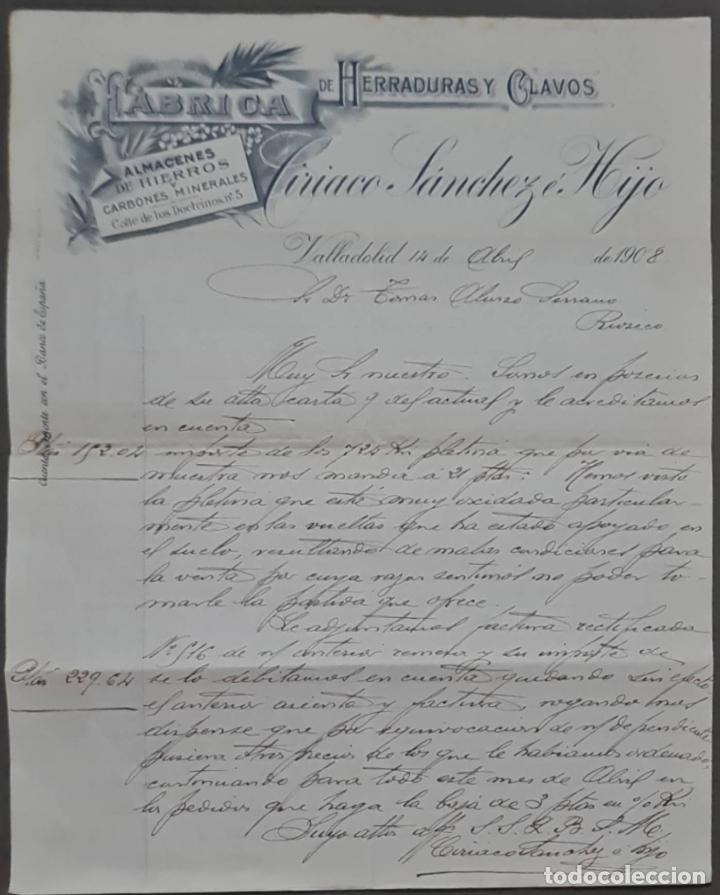 FÁBRICA DE HERRADURAS Y CLAVOS
ALMACENES
DE HIERROS
Y
CARBONES MINERALES
Calle de los Doctrinos, nº 5
Ciriaco Sánchez é Hijo
Valladolid 14 de Abril de 1908
Sr Dn Tomas Alonso Serrano
Rioseco
Cuenta corriente con el Banco de España
Muy Sr nuestro: Somos en posesion
de su atta carta 9 del actual y le acreditamos
en cuenta
Ptas 152.04 importe de los 724 Ks pletina que por via de
muestra nos mandia a 21 ptas: Hemos visto
la pletina que esté muy oxidada particular-
mente en las vueltas que ha estado apoyado en
el suelo, resultando de malas condiciones para
la venta por cuya razon sentimos no poder to-
marle la partida que ofrece.
Le adjuntamos factura rectificada
Nº 516 de n/ anterior remesa y su importe de
Ptas 229.64 se lo debitamos en cuenta quedando sin efecto
el anterior asiento y factura, rogando nos
dispense que por equivocacion de n/ dependiente
pusiera otros precios de los que le habiamos ordenado,
continuando para todo este mes de Abril en
los pedidos que haga la baja de 3 ptas en % Ks
Suyo atto S. S. Q. B. S. M.
Ciriaco Sanchez é Hijo
todocoleccion